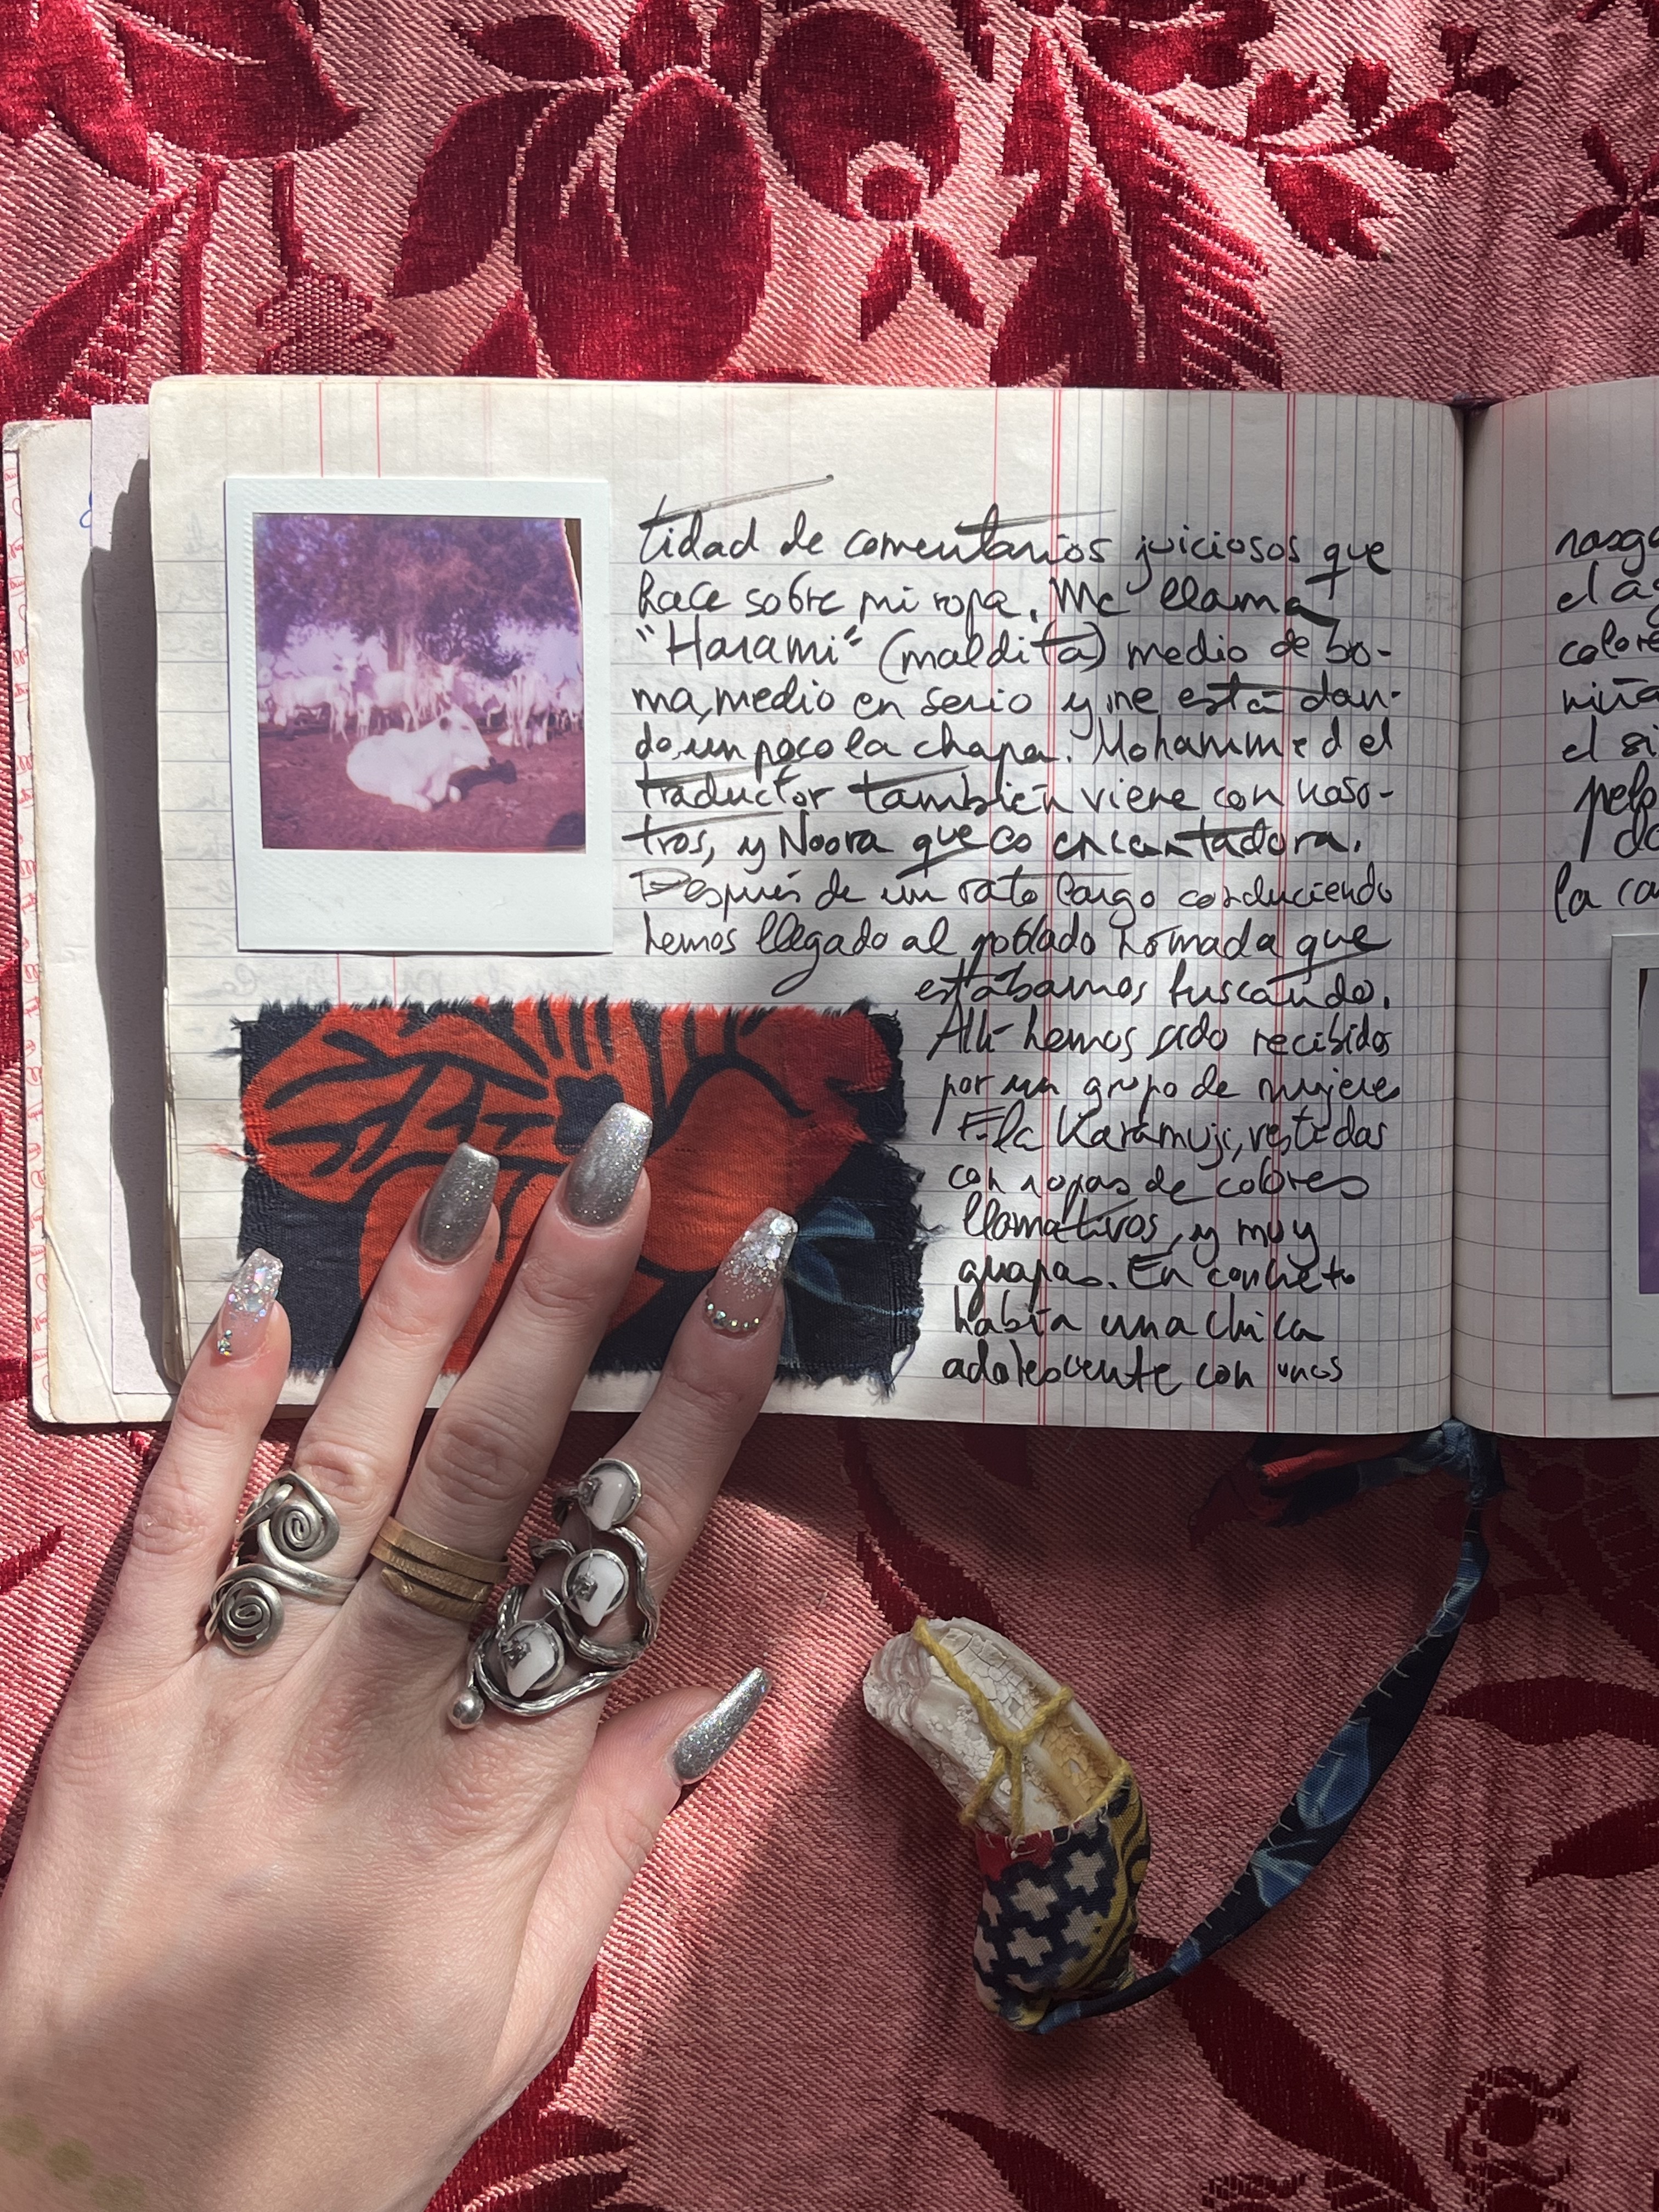 tidad de comentarios juiciosos que
hace sobre mi ropa. Me llama
"Harami" (maldita) medio de bo-
ma, medio en serio y me está dan-
do un poco la chapa. Mohammed el
traductor también viene con noso-
tros, y Noora que es encantadora.
Después de un rato largo conduciendo
hemos llegado al poblado nómada que
estábamos buscando.
Allí hemos sido recibidos
por un grupo de mujeres
Karamuji, vestidas
con ropas de colores
llamativos, y muy
guapas. En concreto
había una chica
adolescente con unos
rasga
el ag
colore
niña
el si
pelo
do
la ca